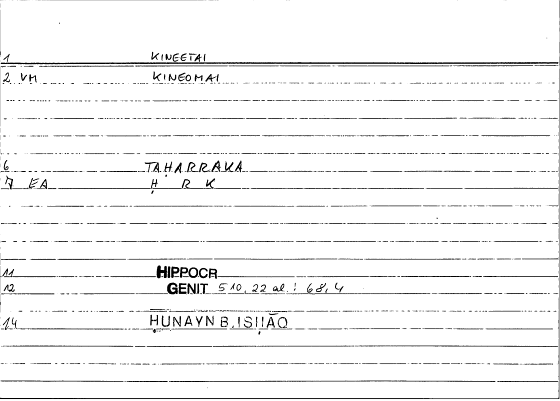 1 KINEETAI
2 VM KINEOMAI
6 TAḤARRAKA
7 EA Ḥ R K
11 HIPPOCR
12 GENIT 510, 22 al. : 68,4
14 ḤUNAYN B. ISḤĀQ